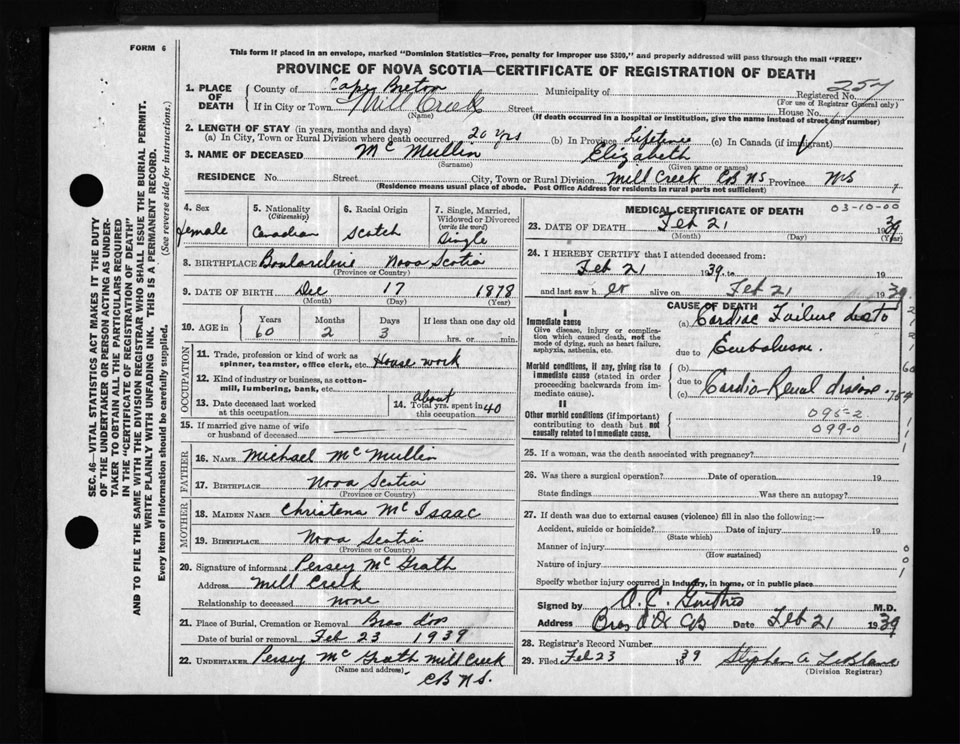 FORM 6
This form if placed in an envelope, marked "Dominion Statistics—Free, penalty for improper use $300," and properly addressed will pass through the mail "FREE"
PROVINCE OF NOVA SCOTIA—CERTIFICATE OF REGISTRATION OF DEATH
257
1. PLACE OF DEATH
County of Cape Breton Municipality of Registered No.
(For use of Registrar General only)
If in City or Town Mill Creek Street House No.
(Name) (If death occurred in a hospital or institution, give the name instead of street and number)
2. LENGTH OF STAY (in years, months and days)
(a) In City, Town or Rural Division where death occurred 20 yrs (b) In Province Lifetime (c) In Canada (if immigrant)
3. NAME OF DECEASED Mc Mullin Elizabeth
(Surname) (Given name or names)
RESIDENCE No. Street City, Town or Rural Division Mill Creek CB NS Province NS
(Residence means usual place of abode. Post Office Address for residents in rural parts not sufficient)
4. Sex female
5. Nationality (Citizenship) Canadian
6. Racial Origin Scotch
7. Single, Married, Widowed or Divorced (write the word) Single
8. BIRTHPLACE Boularderie Nova Scotia
(Province or Country)
9. DATE OF BIRTH Dec 17 1878
(Month) (Day) (Year)
10. AGE in Years 60 Months 2 Days 3 If less than one day old
hrs. or min.
OCCUPATION
11. Trade, profession or kind of work as spinner, teamster, office clerk, etc. House work
12. Kind of industry or business, as cotton-mill, lumbering, bank, etc.
13. Date deceased last worked at this occupation
14. Total yrs. spent in this occupation About 40
15. If married give name of wife or husband of deceased
FATHER
16. NAME Michael Mc Mullin
17. BIRTHPLACE Nova Scotia
(Province or Country)
MOTHER
18. MAIDEN NAME Christena Mc Isaac
19. BIRTHPLACE Nova Scotia
(Province or Country)
20. Signature of informant Persey Mc Grath
Address Mill Creek
Relationship to deceased none
21. Place of Burial, Cremation or Removal Bras d'or
Date of burial or removal Feb 23 1939
22. UNDERTAKER Persey Mc Grath Mill Creek
(Name and address) CB NS.
MEDICAL CERTIFICATE OF DEATH 03-10-00
23. DATE OF DEATH Feb 21 1939
(Month) (Day) (Year)
24. I HEREBY CERTIFY that I attended deceased from:
Feb 21 1939 to 19
and last saw h er alive on Feb 21 1939
CAUSE OF DEATH
I
Immediate cause
Give disease, injury or complication which caused death, not the mode of dying, such as heart failure, asphyxia, asthenia, etc.
(a) Cardiac Failure due to
due to Embolism.
Morbid conditions, if any, giving rise to immediate cause (stated in order proceeding backwards from immediate cause).
(b)
due to
(c) Cardio-Renal disease
II
Other morbid conditions (if important) contributing to death but not causally related to immediate cause.
095-2
099-0
25. If a woman, was the death associated with pregnancy?
26. Was there a surgical operation? Date of operation 19
State findings Was there an autopsy?
27. If death was due to external causes (violence) fill in also the following:—
Accident, suicide or homicide? Date of injury 19
(State which)
Manner of injury
(How sustained)
Nature of injury
Specify whether injury occurred in industry, in home, or in public place
Signed by M.D.
Address Bras d'Or CB Date Feb 21 1939
28. Registrar's Record Number
29. Filed Feb 23 1939 Stephen A LeBlanc
(Division Registrar)
SEC. 46—VITAL STATISTICS ACT MAKES IT THE DUTY
OF THE UNDERTAKER OR PERSON ACTING AS UNDER-
TAKER TO OBTAIN ALL THE PARTICULARS REQUIRED
IN THE "CERTIFICATE OF REGISTRATION OF DEATH"
AND TO FILE THE SAME WITH THE DIVISION REGISTRAR WHO SHALL ISSUE THE BURIAL PERMIT.
WRITE PLAINLY WITH UNFADING INK. THIS IS A PERMANENT RECORD.
Every item of information should be carefully supplied. (See reverse side for instructions.)